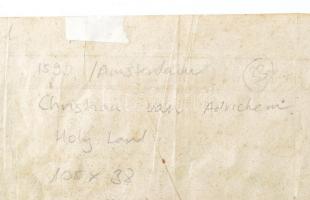 1590 / Amsterdam
Christian van Adrichem
Holy Land
105 x 38